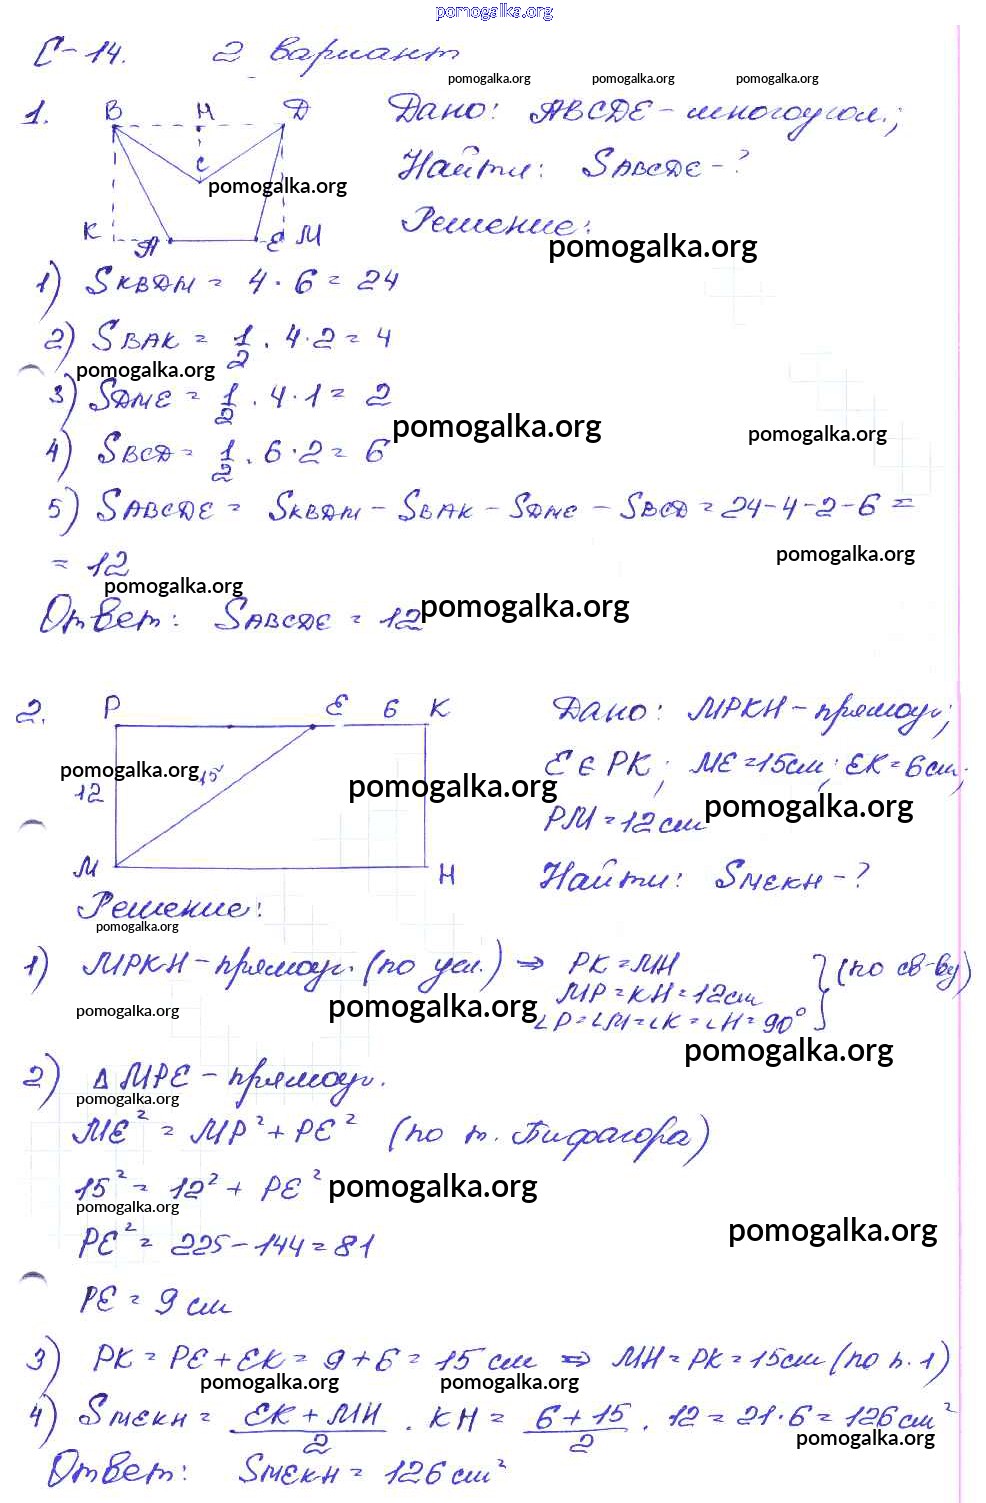 pomogalka.org
С-14. 2 вариант
pomogalka.org pomogalka.org pomogalka.org
1. B H D Дано: ABCDE - многоугол.;
C
Найти: SABCDE - ?
pomogalka.org
K A E M Решение:
pomogalka.org
1) SKBDM = 4 · 6 = 24
2) SBAK = 1/2 · 4 · 2 = 4
pomogalka.org
3) SDME = 1/2 · 4 · 1 = 2
pomogalka.org pomogalka.org
4) SBCD = 1/2 · 6 · 2 = 6
5) SABCDE = SKBDM - SBAK - SDME - SBCD = 24-4-2-6 =
pomogalka.org
= 12
pomogalka.org
Ответ: SABCDE = 12
pomogalka.org
2. P E 6 K Дано: MPKH - прямоуг;
E ∈ PK; ME = 15см; EK = 6см;
pomogalka.org 15 pomogalka.org pomogalka.org
12
PM = 12см
M H Найти: SMEKH - ?
Решение:
pomogalka.org
1) MPKH - прямоуг. (по усл.) ⇒ PK = MH
MP = KH = 12см
∠P = ∠M = ∠K = ∠H = 90°
} (по св-ву)
pomogalka.org pomogalka.org
pomogalka.org
2) Δ MPE - прямоуг.
pomogalka.org
ME² = MP² + PE² (по т. Пифагора)
15² = 12² + PE²
pomogalka.org
pomogalka.org
pomogalka.org
PE² = 225 - 144 = 81
PE = 9 см
3) PK = PE + EK = 9 + 6 = 15 см ⇒ MH = PK = 15см (по п. 1)
pomogalka.org pomogalka.org
4) SMEKH = EK + MH/2 · KH = 6 + 15/2 · 12 = 21 · 6 = 126 см²
pomogalka.org
Ответ: SMEKH = 126 см²